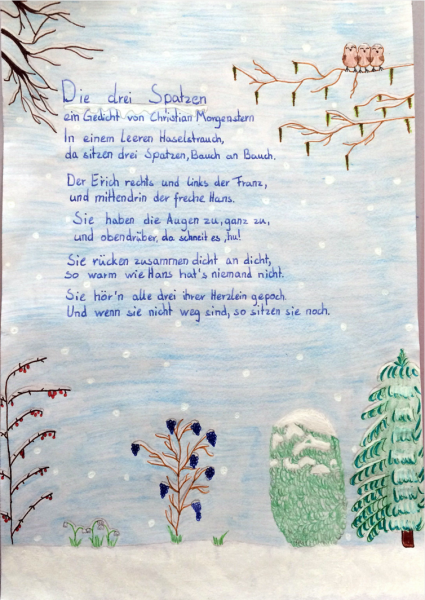 Die drei Spatzen
ein Gedicht von Christian Morgenstern
In einem leeren Haselstrauch,
da sitzen drei Spatzen, Bauch an Bauch.
Der Erich rechts und links der Franz,
und mittendrin der freche Hans.
Sie haben die Augen zu, ganz zu,
und obendrüber, da schneit es, hu!
Sie rücken zusammen dicht an dicht,
so warm wie Hans hat's niemand nicht.
Sie hör'n alle drei ihrer Herzlein gepoch.
Und wenn sie nicht weg sind, so sitzen sie noch.